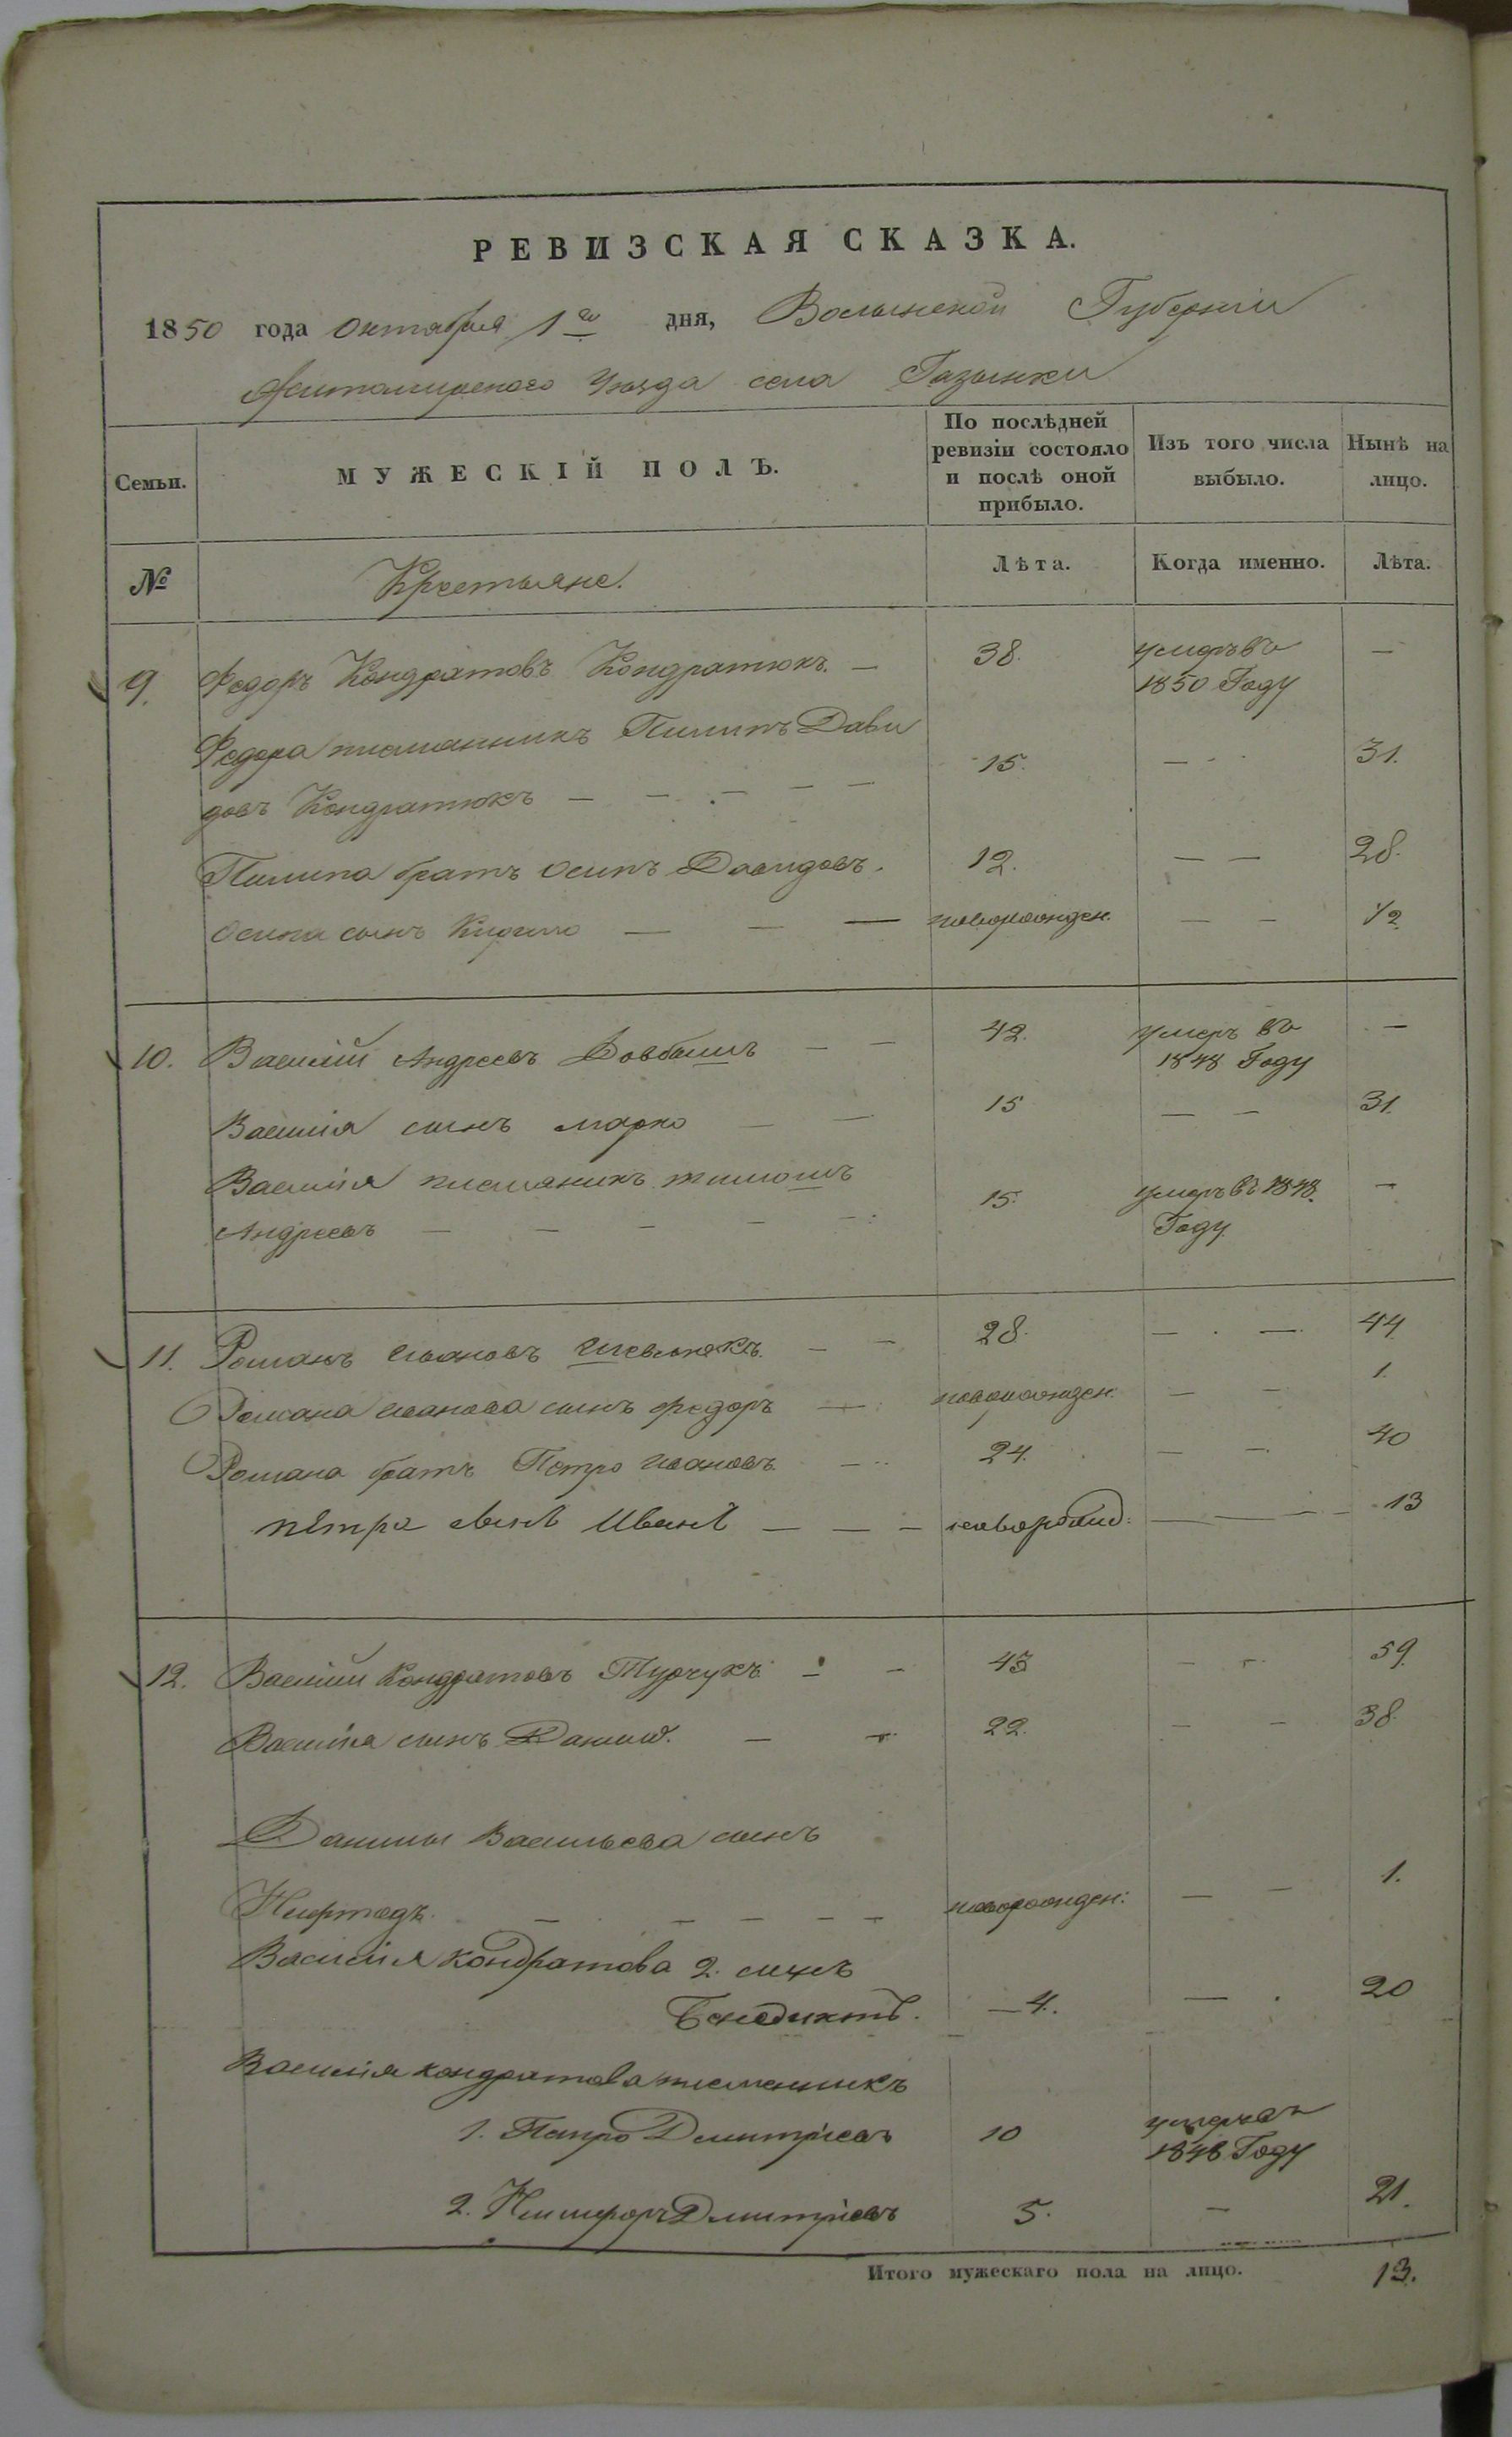 РЕВИЗСКАЯ СКАЗКА.
1850 года Октября 1го дня, Волынской Губернии
Житомирского Уезда села Газынки
Семьи. МУЖЕСКІЙ ПОЛЪ. По послѣдней ревизіи состояло и послѣ оной прибыло. Изъ того числа выбыло. Нынѣ на лицо.
№ Крестьяне. Лѣта. Когда именно. Лѣта.
9. Федоръ Кондратовъ Кондратюкъ. — 38. умеръ въ —
1850 Году
Федора племянникъ Пилипъ Дави
довъ Кондратюкъ — — — — — 15. — 31.
Пилипа братъ Осипъ Давидовъ. 12. — — 28.
Осипа сынъ Кирило — — — новорожден. — — 1/2
10. Василій Андреевъ Довбышъ — — 42. умеръ въ —
1848 Году
Василія сынъ Марко — — 15 — — 31.
Василія племяникъ Тимошъ
Андреевъ — — — — — 15. умеръ въ 1848. —
Году
11. Романъ Ивановъ Шевлюкъ. — — 28. — — 44
Романа Иванова сынъ Федоръ — новорожден. — — 1.
Романа братъ Петро Ивановъ — 24. — — 40
Петра сынъ Иванъ — — — новорожд: — — — 13
12. Василій Кондратовъ Турчукъ — — 43 — — 59.
Василія сынъ Данило. — — 22. — — 38.
Данилы Васильева сынъ
— — — — — новорожден: — — 1.
Василія Кондратова 2. сынъ
Бенедиктъ. — 4. — 20
Василія Кондратова племенникъ
1. Дмитріевъ 10 умеръ въ
1848 Году
2. Дмитріевъ 5. — 21.
Итого мужескаго пола на лицо. 13.